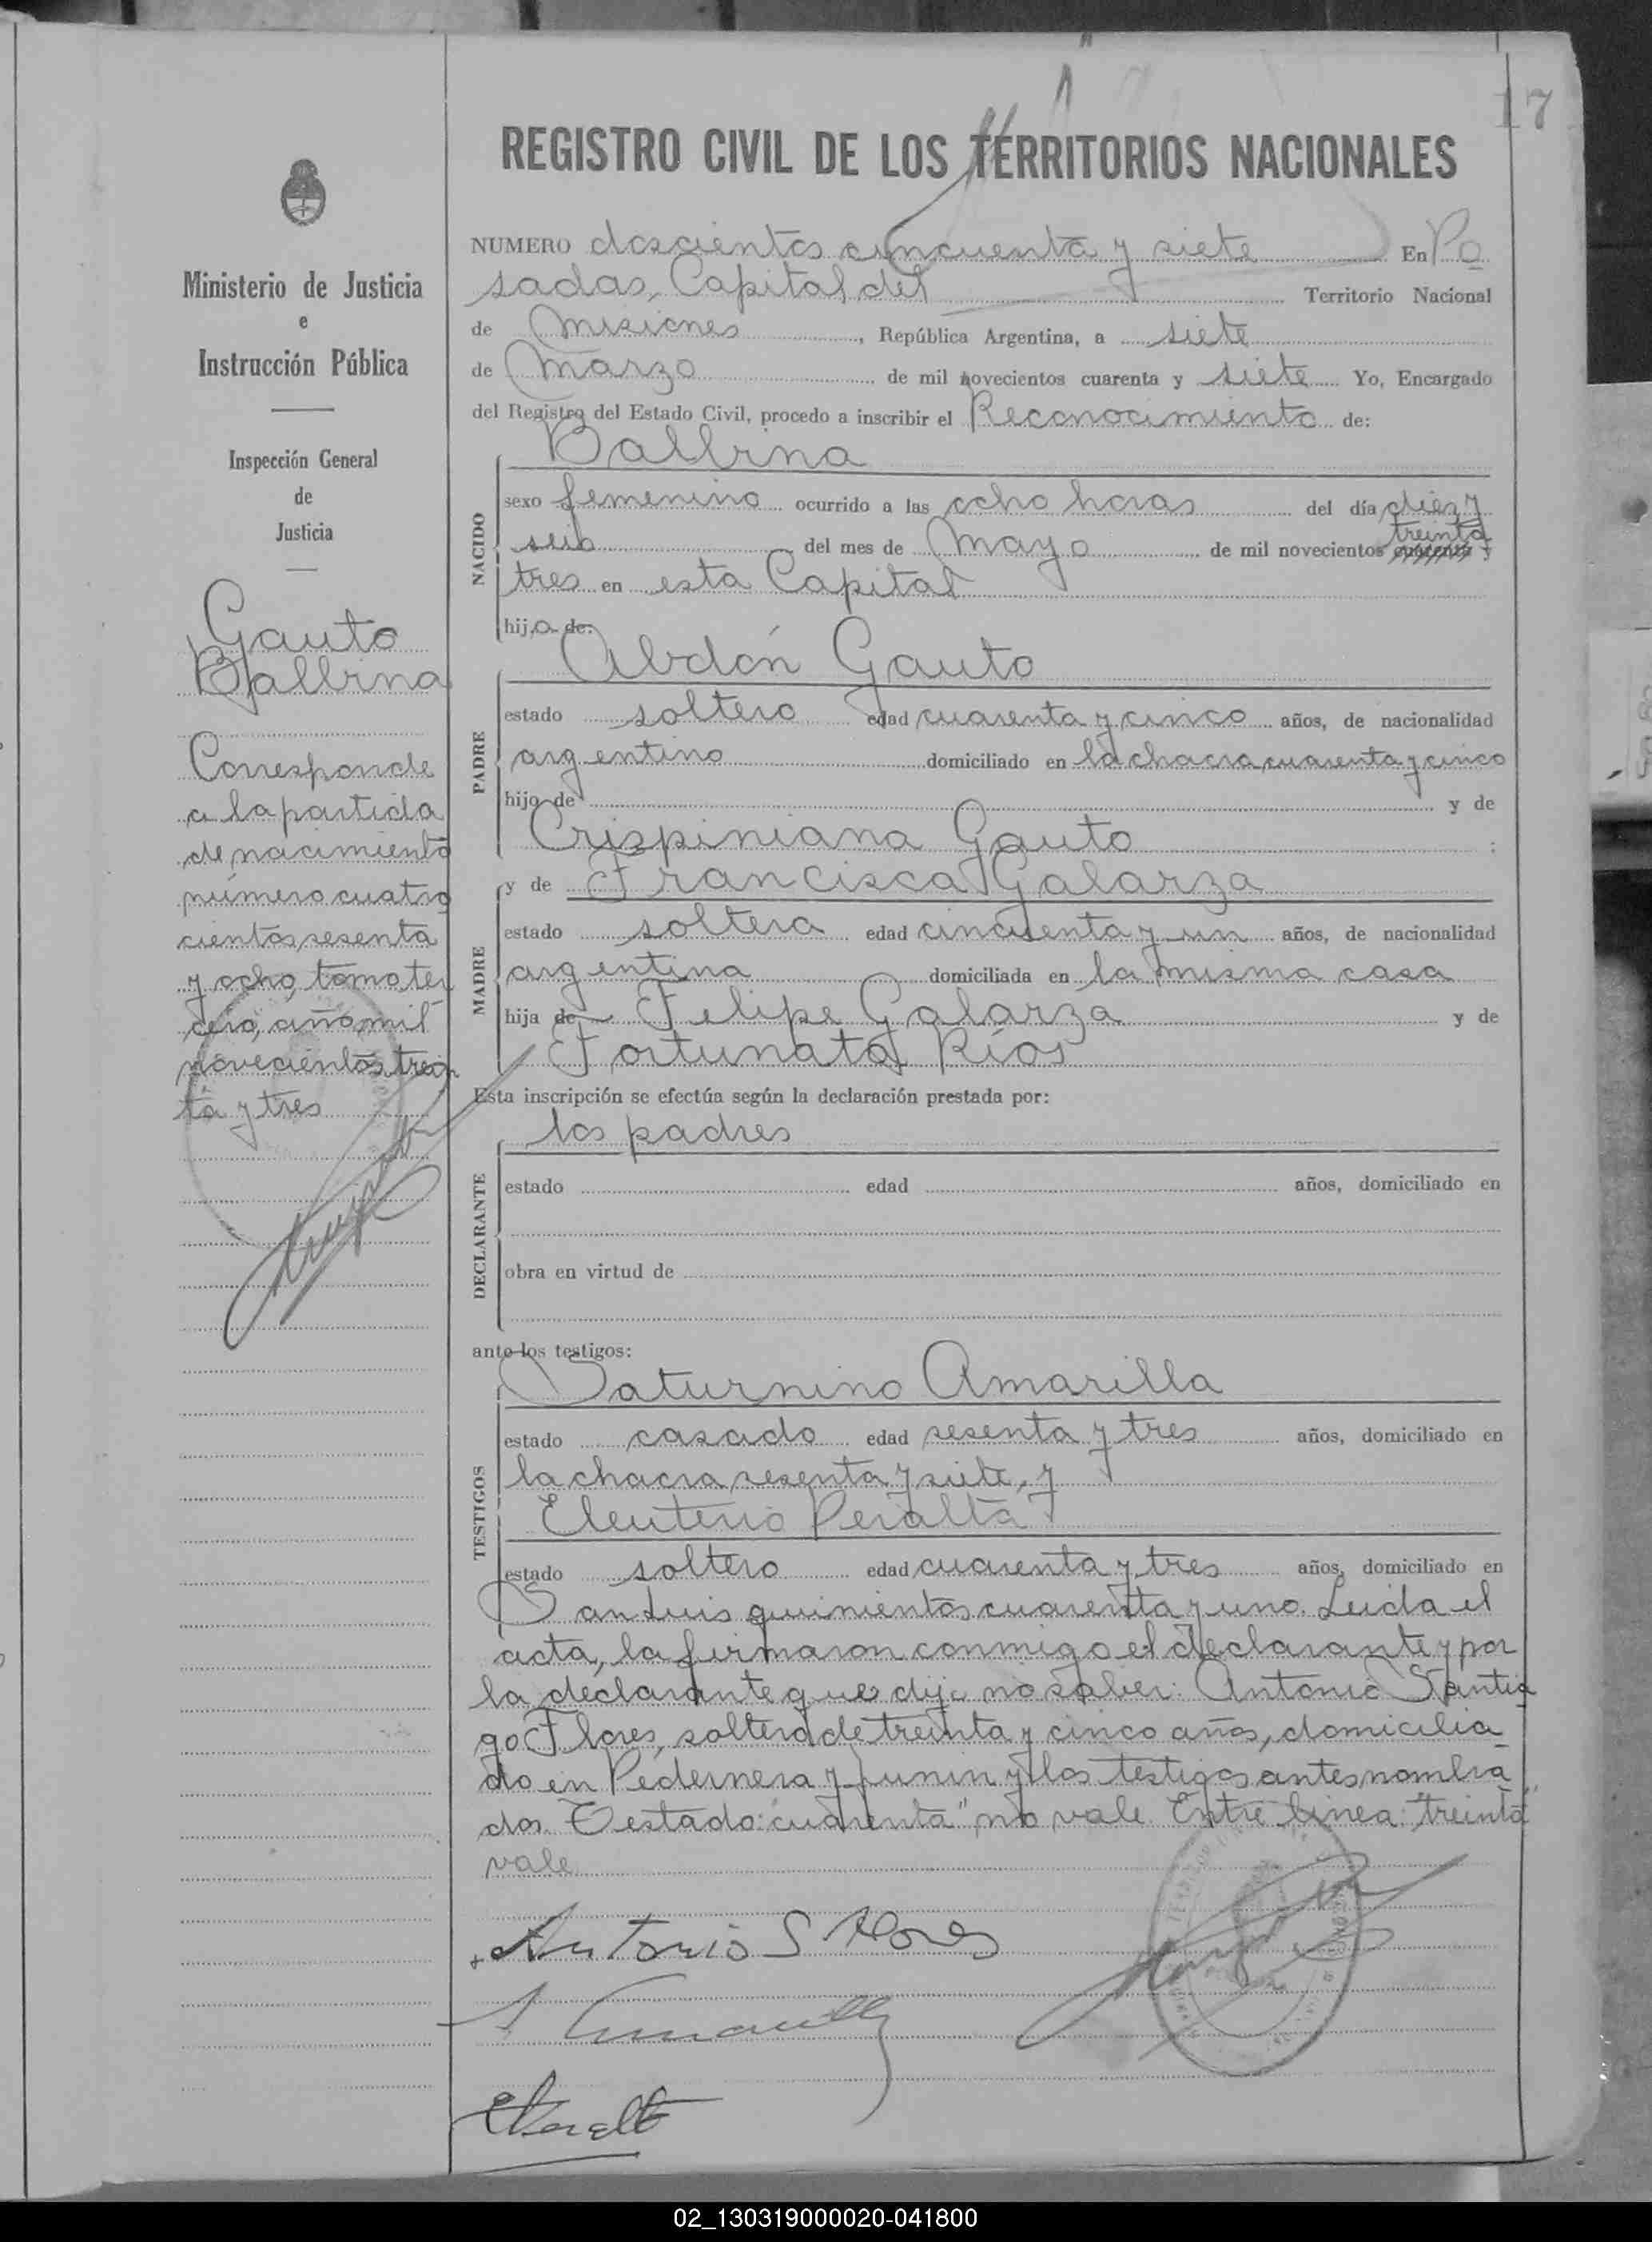 17
REGISTRO CIVIL DE LOS TERRITORIOS NACIONALES
Ministerio de Justicia
e
Instrucción Pública
Inspección General
de
Justicia
Gauto
Balbina
Corresponde
a la partida
de nacimiento
número cuatro
cientos sesenta
y ocho, tomo ter
cero, año mil
novecientos trein
ta y tres
NUMERO doscientos cincuenta y siete En Po
sadas, Capital del Territorio Nacional
de Misiones, República Argentina, a siete
de Marzo de mil novecientos cuarenta y siete Yo, Encargado
del Registro del Estado Civil, procedo a inscribir el Reconocimiento de:
Balbina
NACIDO
sexo femenino ocurrido a las ocho horas del día diez y
seis del mes de Mayo de mil novecientos cuarenta y treinta
tres en esta Capital
hija de:
Abdón Gauto
PADRE
estado soltero edad cuarenta y cinco años, de nacionalidad
argentino domiciliado en la chacra cuarenta y cinco
hijo de y de
Crispiniana Gauto :
y de Francisca Galarza
MADRE
estado soltera edad cincuenta y un años, de nacionalidad
argentina domiciliada en la misma casa
hija de Felipe Galarza y de
Fortunata Ríos
Esta inscripción se efectúa según la declaración prestada por:
los padres
DECLARANTE
estado edad años, domiciliado en
obra en virtud de
ante los testigos:
Saturnino Amarilla
TESTIGOS
estado casado edad sesenta y tres años, domiciliado en
la chacra sesenta y siete, y
Eleuterio Peralta
estado soltero edad cuarenta y tres años, domiciliado en
San Luis quinientos cuarenta y uno. Leida el
acta, la firmaron conmigo el declarante y por
la declarante que dijo no saber: Antonio Santia
go Flores, soltero de treinta y cinco años, domicilia
do en Pedernera y Junin y los testigos antes nombra
dos. Testado: "cuarenta" no vale. Entre linea: "treinta"
vale
Antonio S Flores
S Amarilla
E Peralta
02_130319000020-041800